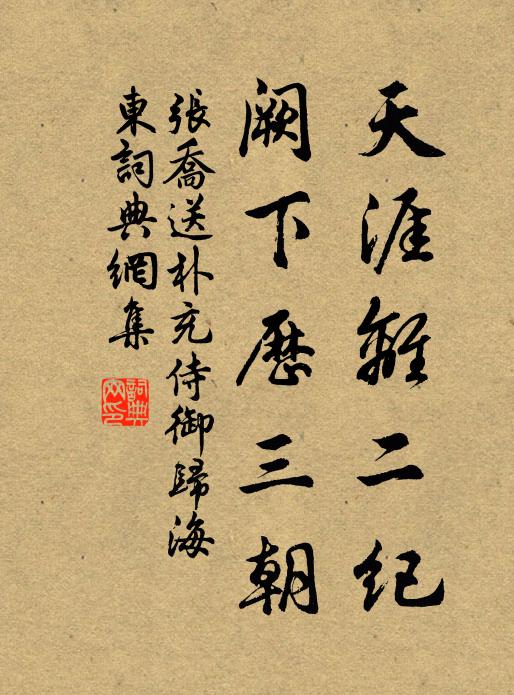 天涯離二紀
闕下歷三朝
張喬送朴充侍御歸海
東詞典網集
詞典網印